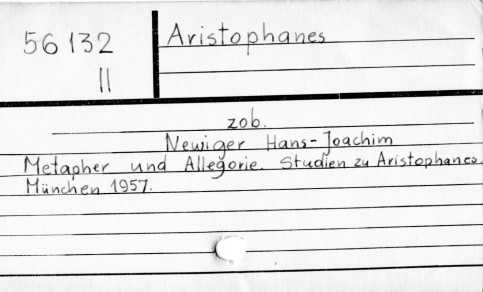 56132 Aristophanes
II
zob.
Newiger Hans-Joachim
Metapher und Allegorie. Studien zu Aristophanes.
München 1957.